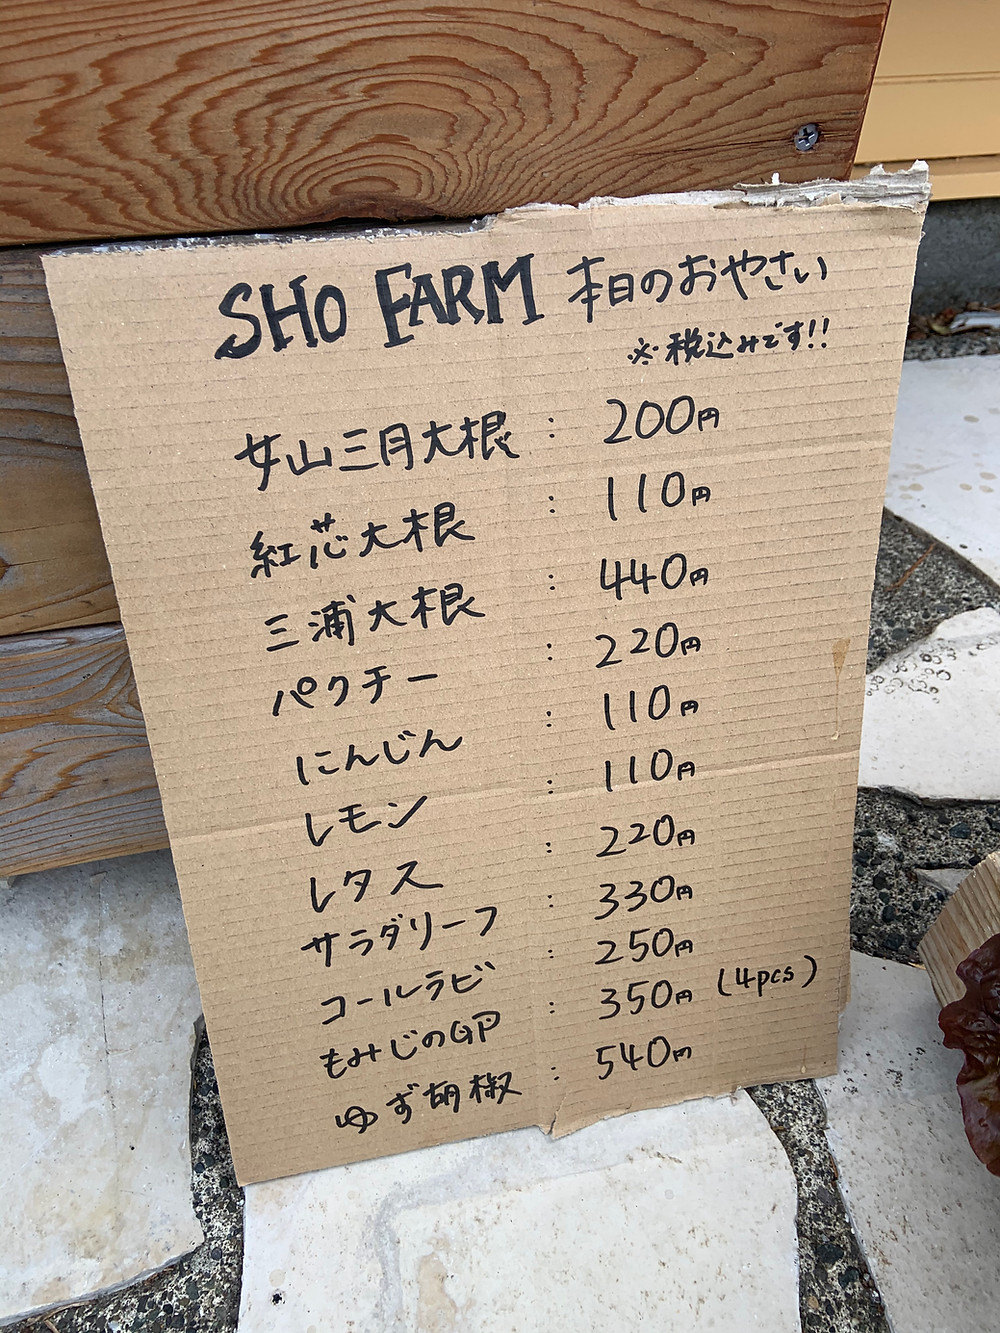 SHO FARM 本日のおやさい
※税込みです!!
女山三月大根 : 200円
紅芯大根 : 110円
三浦大根 : 440円
パクチー : 220円
にんじん : 110円
レモン : 110円
レタス : 220円
サラダリーフ : 330円
コールラビ : 250円
もみじのGP : 350円 (4pcs)
ゆず胡椒 : 540円